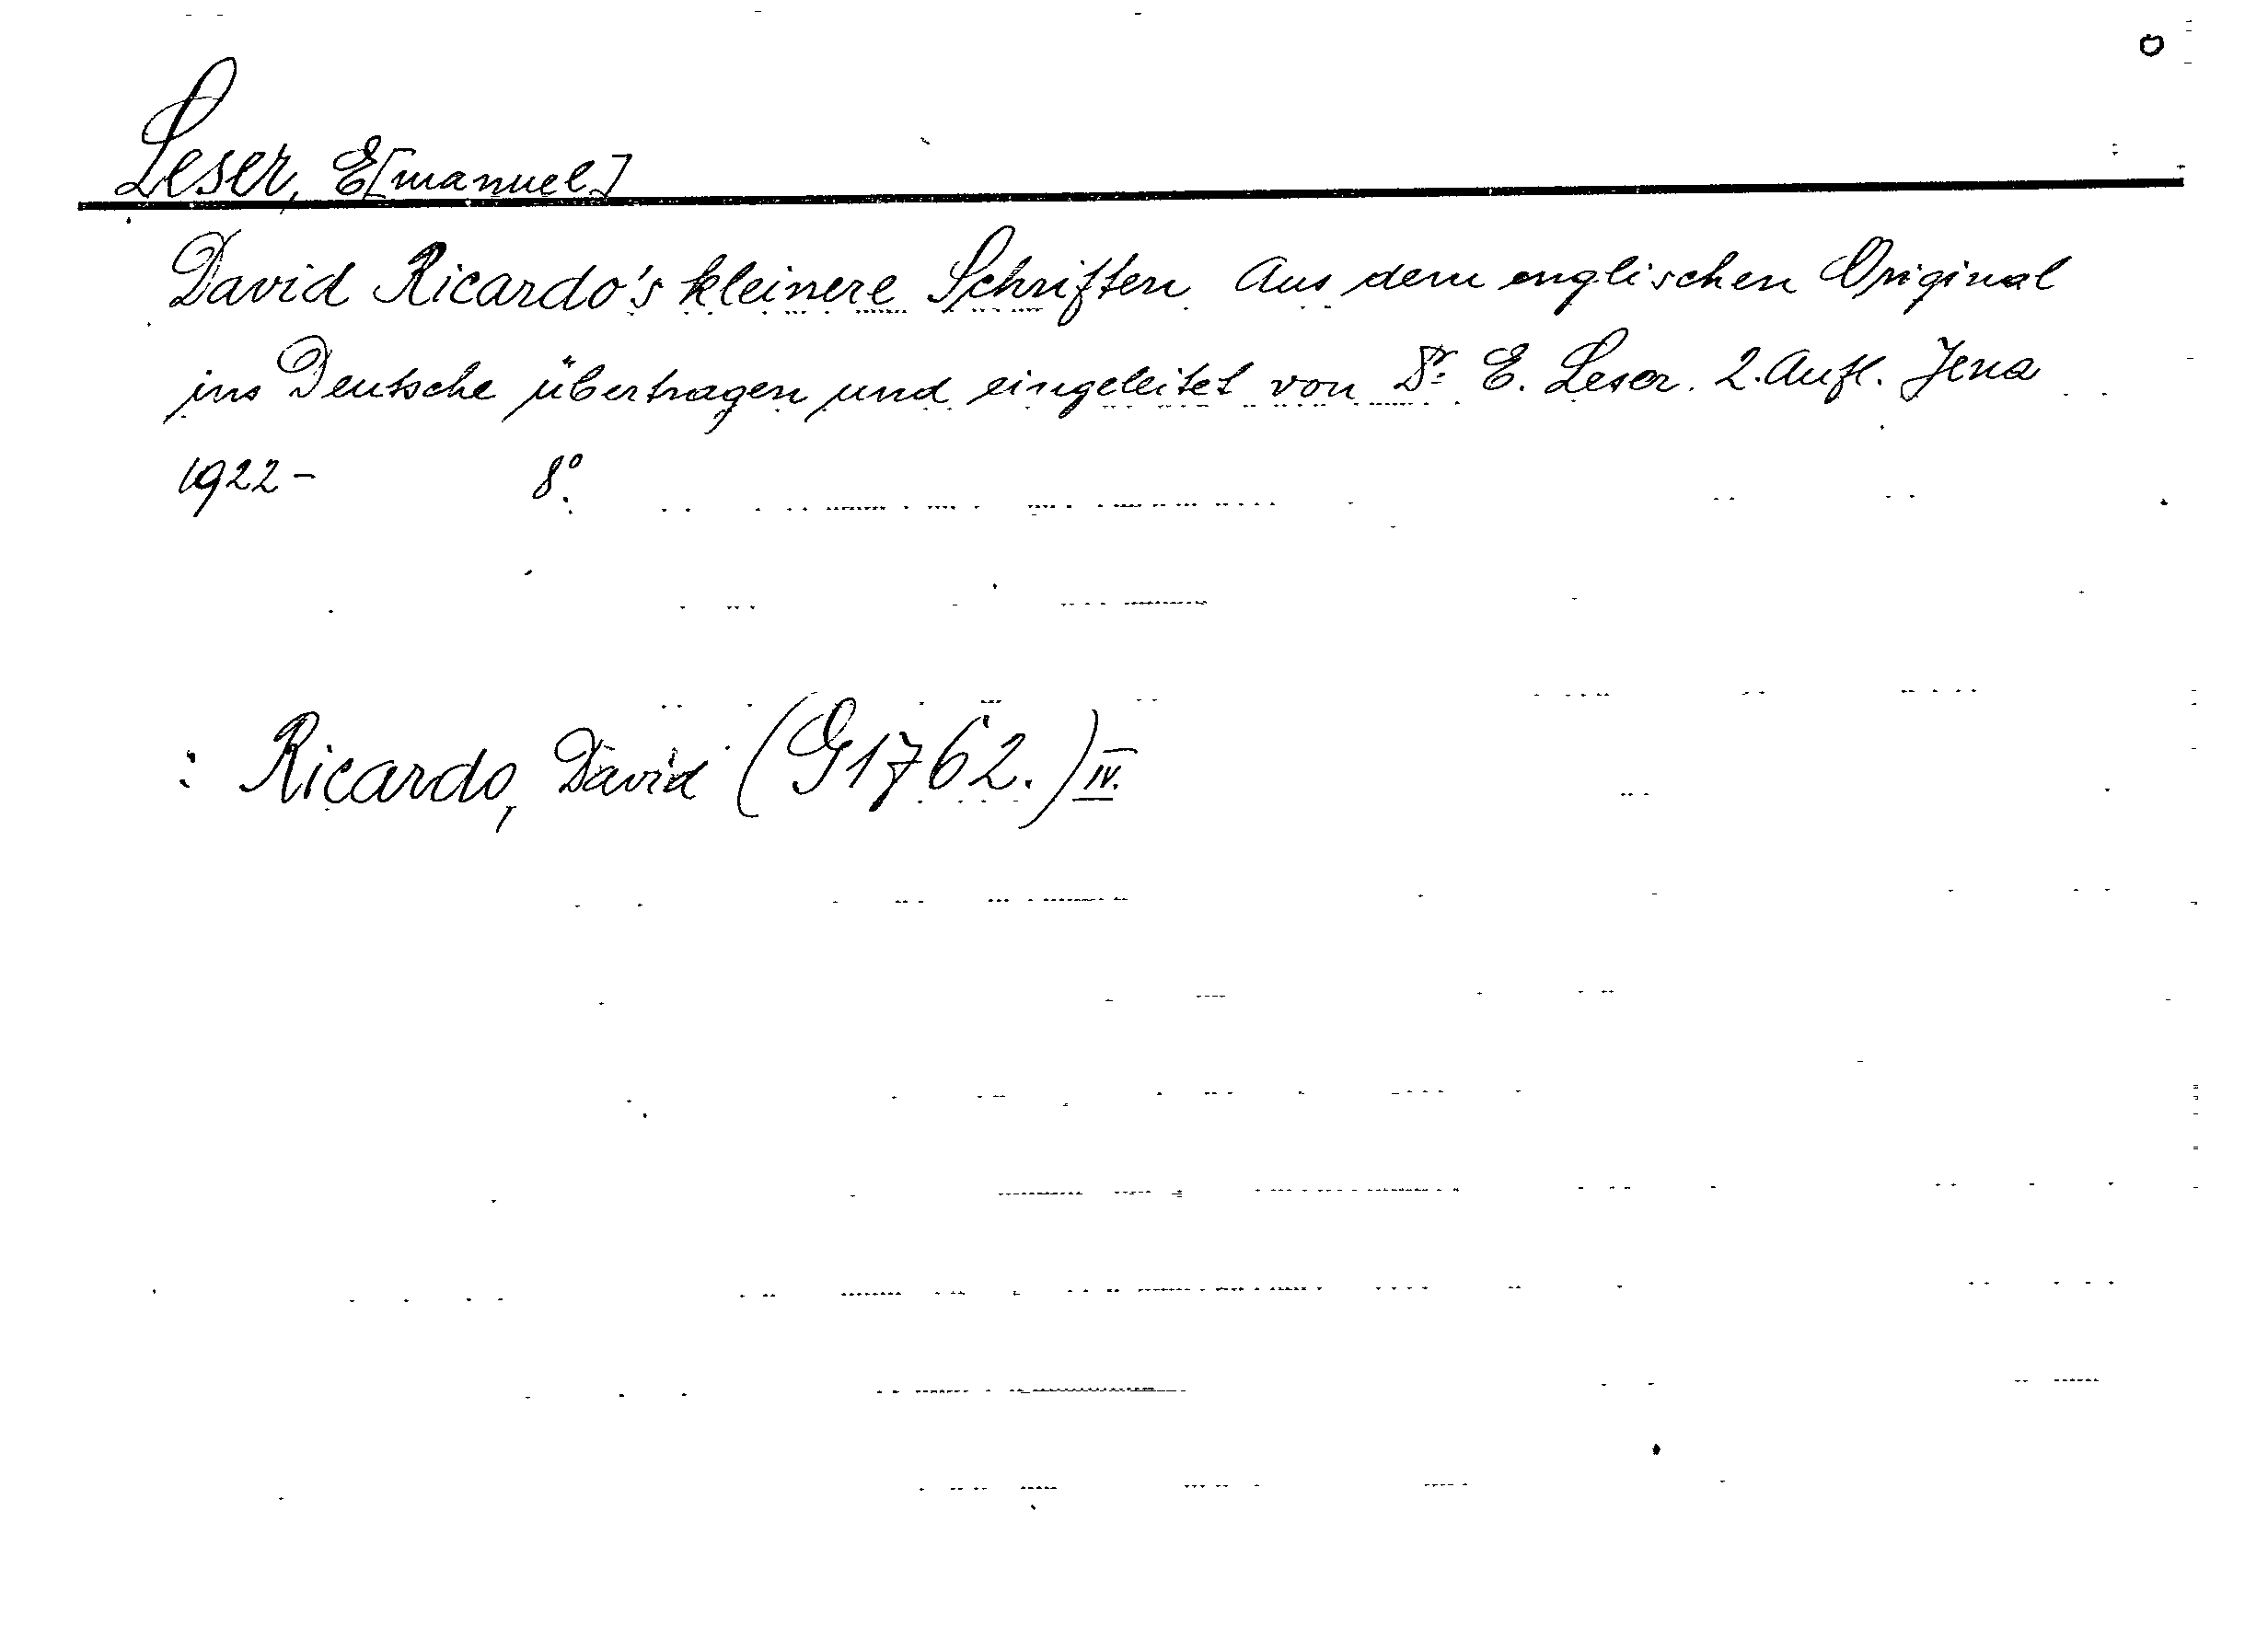 Leser, E[manuel]
David Ricardo's kleinere Schriften. Aus dem englischen Original
ins Deutsche übertragen und eingeleitet von Dr. E. Leser. 2. Aufl. Jena
1922- 8°.
: Ricardo, David (G1762.) IV.